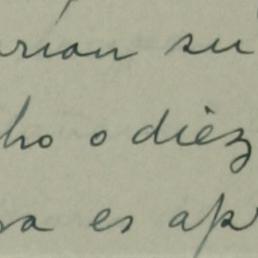 rian su
ho o diez
sa es ap